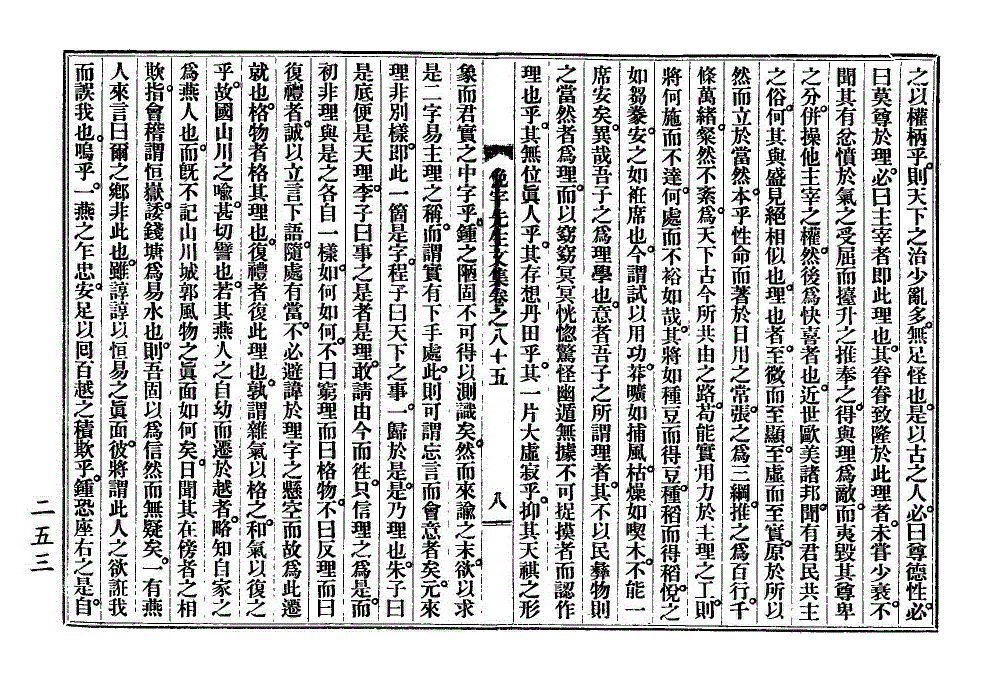 之以權柄乎則天下之治少亂多無足怪也是以古之人必曰尊德性必
曰莫尊於理必曰主宰者即此理也其眷眷致隆於此理者未嘗少衰不
聞其有忿憤於氣之受屈而擡升之推奉之得與理爲敵而夷毀其尊卑
之分併操他主宰之權然後爲快喜者也近世歐美諸邦聞有君民共主
之俗何其與盛見絕相似也理也者至微而至顯至虛而至實原於所以
然而立於當然本乎性命而著於日用之常張之爲三綱推之爲百行千
條萬緖粲然不紊爲天下古今所共由之路苟能實用力於主理之工則
將何施而不達何處而不裕如哉其將如種豆而得豆種稻而得稻悅之
如芻豢安之如袵席也今謂試以用功莽曠如捕風枯燥如喫木不能一
席安矣異哉吾子之爲理學也意者吾子之所謂理者其不以民彝物則
之當然者爲理而以窈窈冥冥恍惚驚怪幽遁無據不可捉摸者而認作
理也乎其無位眞人乎其存想丹田乎其一片大虛寂乎抑其天祺之形
俛宇先生文集卷之八十五 八
象而君實之中字乎鍾之陋固不可得以測識矣然而來諭之末欲以求
是二字易主理之稱而謂實有下手處此則可謂忘言而會意者矣元來
理非別樣即此一箇是字程子曰天下之事一歸於是是乃理也朱子曰
是底便是天理李子曰事之是者是理敢請由今而徃只信理之爲是而
初非理與是之各自一樣如何如何不曰窮理而曰格物不曰反理而曰
復禮者誠以立言下語隨處有當不必避諱於理字之懸空而故爲此遷
就也格物者格其理也復禮者復此理也孰謂雜氣以格之和氣以復之
乎故國山川之喩甚切譬也若其燕人之自幼而遷於越者略知自家之
爲燕人也而旣不記山川城郭風物之眞面如何矣日聞其在傍者之相
欺指會稽謂恒嶽諉錢塘爲易水也則吾固以爲信然而無疑矣一有燕
人來言曰爾之鄕非此也雖諄諄以恒易之眞面彼將謂此人之欲誑我
而誤我也嗚乎一燕之乍忠安足以回百越之積欺乎鍾恐座右之是自
二五三